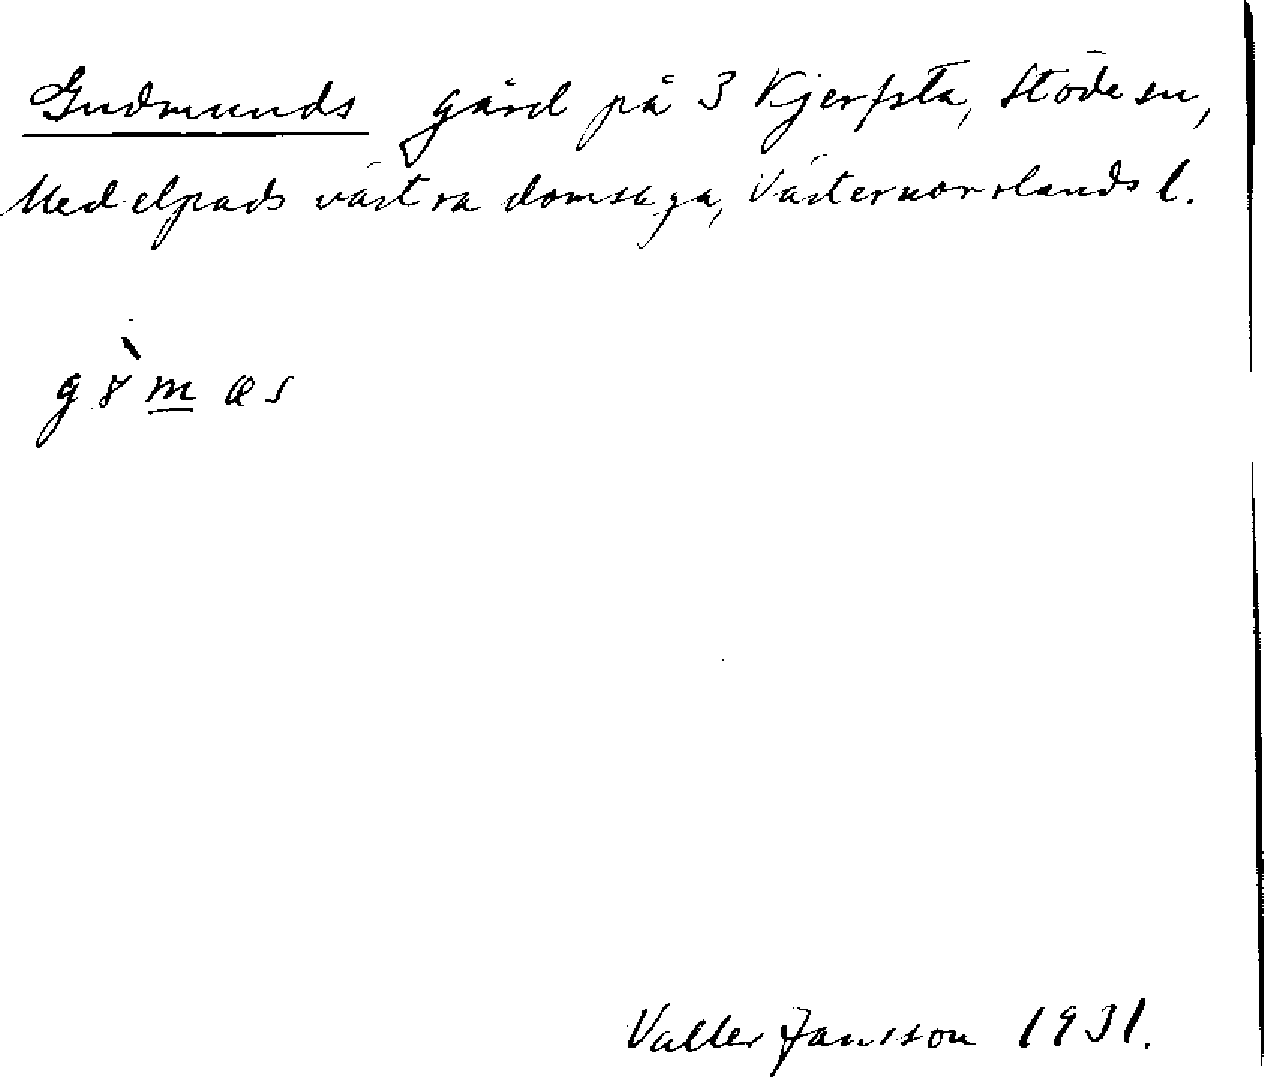 Gudmunds gård på 3 Kjerfsta, Stöde sn,
Medelpads västra domsaga, Västernorrlands l.
Valter Jansson 1931.